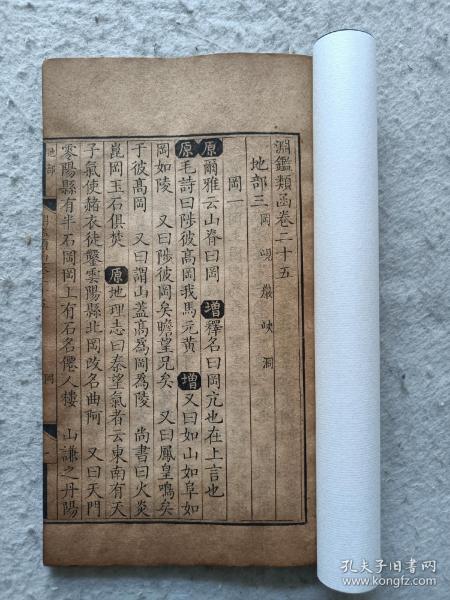 淵鑑類函卷二十五
地部三 岡 峴 巖 峽 洞
岡一
原爾雅云山脊曰岡 增釋名曰岡亢也在上言也
原毛詩曰陟彼高岡我馬元黃 增又曰如山如阜如
岡如陵 又曰陟彼岡矣瞻望兄矣 又曰鳳皇鳴矣
于彼高岡 又曰謂山蓋高爲岡爲陵 尚書曰火炎
崑岡玉石俱焚 原地理志曰秦望氣者云東南有天
子氣使赭衣徒鑿雲陽縣北岡改名曲阿 又曰天門
零陽縣有半石岡岡上有石名僊人樓 山謙之丹陽
地部
岡
一
孔夫子旧书网
www.kongfz.com